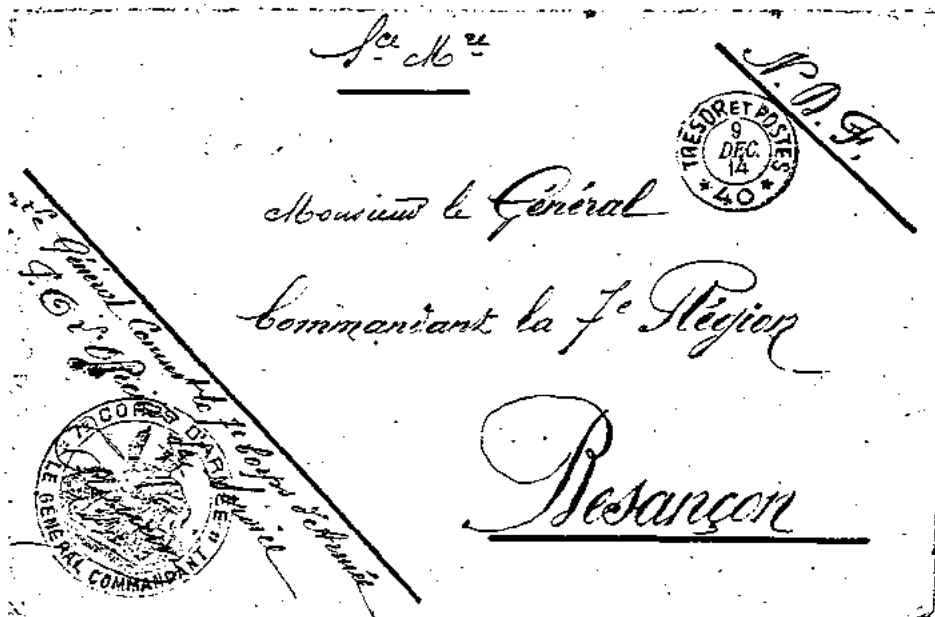 Sce Mre
N. D. F.
TRESOR ET POSTES
9
DÉC.
14
* 40 *
Monsieur le Général
Commandant la 7e Région
Besançon
le Général Commandt le 7e Corps d'Armée
P. O. L'Officier
7E CORPS D'ARMÉE
LE GENERAL COMMANDANT